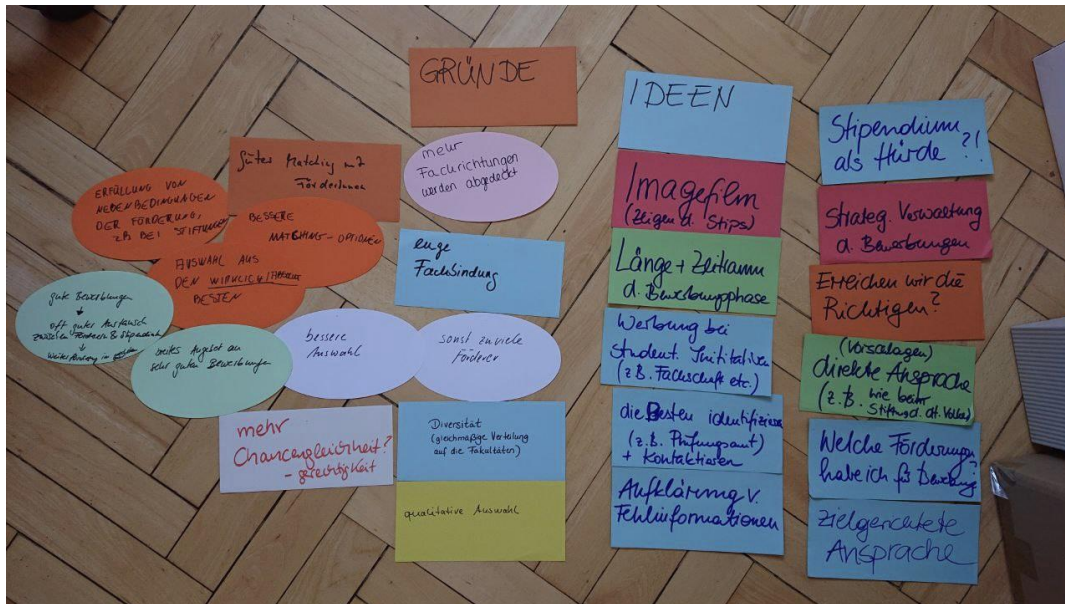 GRÜNDE
gutes Matching mit
FörderInnen
mehr
Fachrichtungen
werden abgedeckt
ERFÜLLUNG VON
NEBENBEDINGUNGEN
DER FÖRDERUNG,
ZB BEI STIFTUNGEN
BESSERE
MATCHING-OPTIONEN
AUSWAHL AUS
DEN WIRKLICH/
BESTEN
enge
Fachbindung
gute Bewerbungen
↓
oft guter Austausch
zwischen Förderern & Stipendiaten
↓
breites Angebot an
sehr guten Bewerbungen
bessere
Auswahl
sonst zu viele
Förderer
mehr
Chancengleichheit?
- gerechtigkeit
Diversität
(gleichmäßige Verteilung
auf die Fakultäten)
qualitative Auswahl
IDEEN
Imagefilm
(Zeigen d. Stips)
Länge + Zeitraum
d. Bewerbungsphase
Werbung bei
student. Inititativen
(z.B. Fachschaft etc.)
die Besten identifizieren
(z.B. Prüfungsamt)
+ Kontaktieren
Aufklärung v.
Fehlinformationen
Stipendium ?!
als Hürde
Strateg. Verwaltung
d. Bewerbungen
Erreichen wir die
Richtigen?
(Vorschlagen)
direkte Ansprache
(z.B. wie beim
Stiftung d. dt. Volkes)
Welche Förderungen
habe ich für Bewerbung?
Zielgerichtete
Ansprache